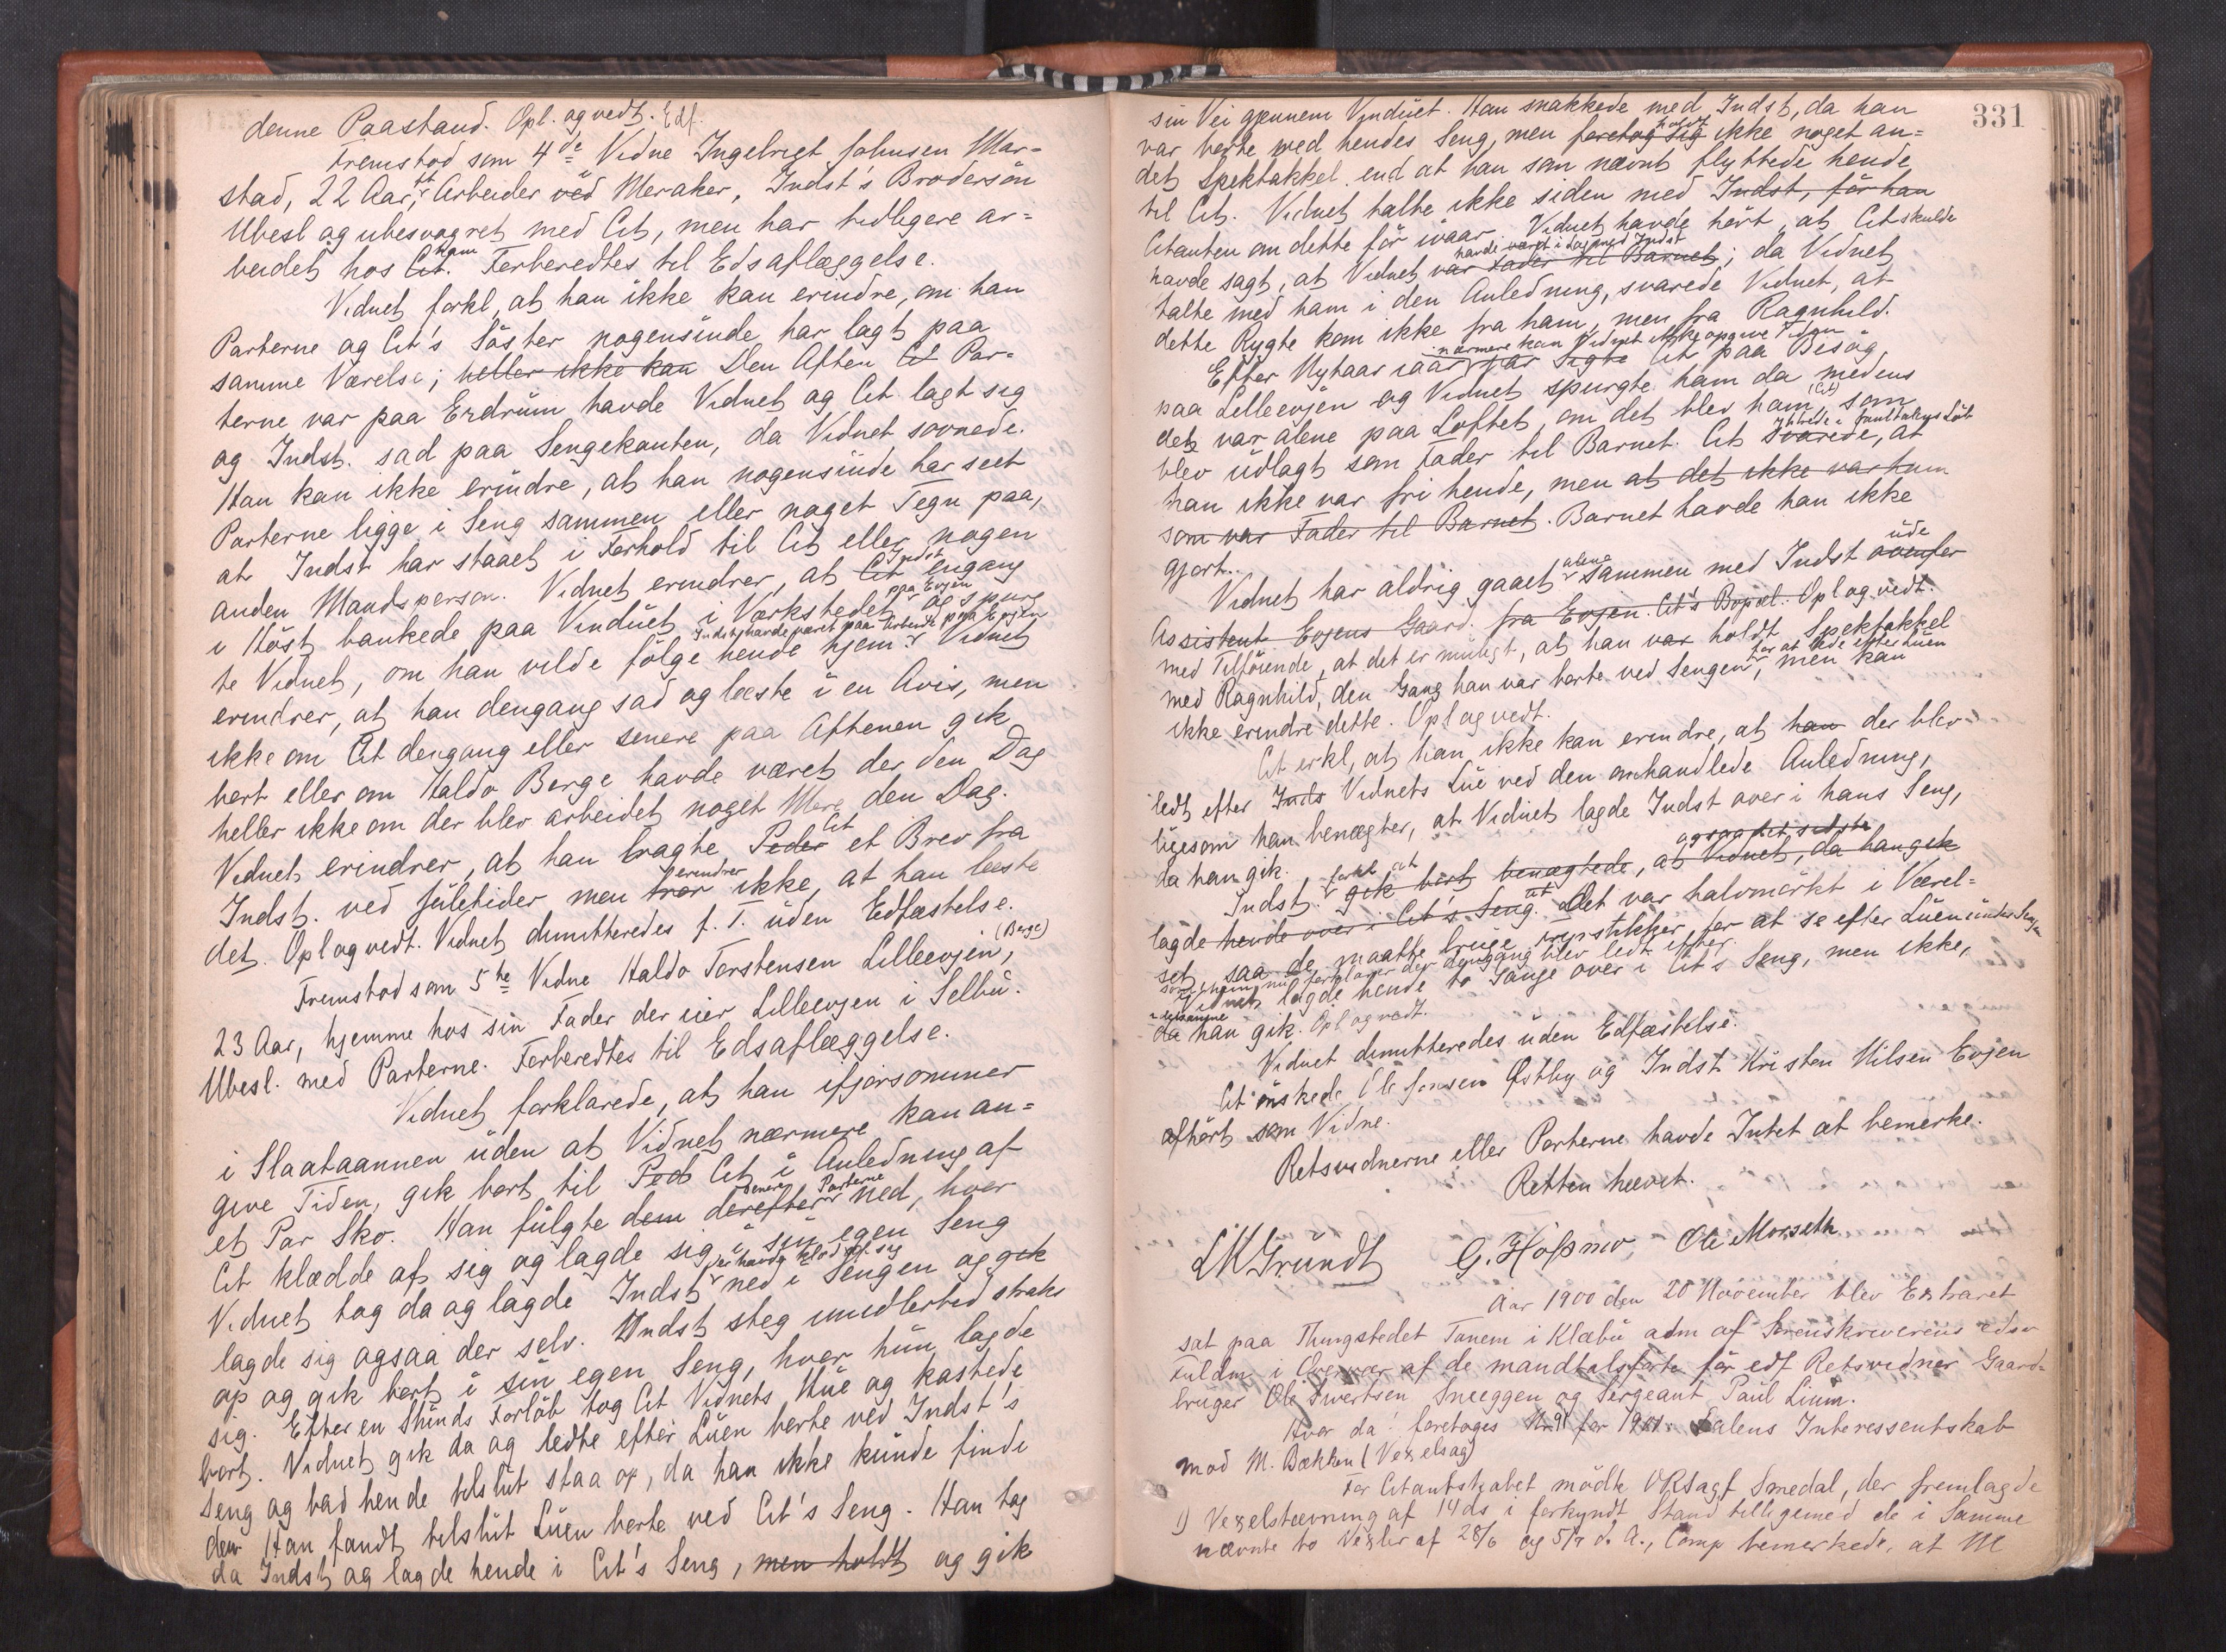 denne Paastand. Opl. og vedt. Edf.
Fremstod som 4de Vidne Ingebrigt Johnsen Mar-
stad, 22 Aar, Arbeider ved Meraker, Indst's Brodersön
Ubesl og ubesvogret med Cit, men har tidligere ar-
beidet hos Cit. ham Forberedtes til Edsaflæggelse.
Vidnet forkl, at han ikke kan erindre, om han
Parterne og Cit's Söster nogensinde har lagt paa
samme Værelse; heller ikke kan Den Aften Cit Par-
terne var paa Erdrum havde Vidnet og Cit lagt sig
og Indst. sad paa Sengekanten, da Vidnet sovnede.
Han kan ikke erindre, at han nogensinde har seet
Parterne ligge i Seng sammen eller noget Tegn paa,
at Indst har staaet i Forhold til Cit eller nogen
anden Mandsperson. Vidnet erindrer, at Cit Indst engang
i Höst bankede paa Vinduet i Værkstedet paa Evjen og spurg
te Vidnet, om han vilde fölge hende hjem. Indst havde været paa Arbeide paa Evjen Vidnet
erindrer, at han dengang sad og læste i en Avis, men
ikke om Cit dengang eller senere paa Aftenen gik
bort eller om Haldo Berge havde været der den Dag
heller ikke om der blev arbeidet noget Mere den Dag.
Vidnet erindrer, at han bragte Peder Cit et Brev fra
Indst. ved Juletider men tror erindrer ikke, at han læste
det. Opl og vedt. Vidnet dimitteredes p. T. uden Edfæstelse.
Fremstod som 5te Vidne Haldo Torstensen Lilleevjen, (Berge)
23 Aar, hjemme hos sin Fader der eier Lilleevjen i Selbu.
Ubesl. med Parterne. Forberedtes til Edsaflæggelse.
Vidnet forklarede, at han ifjorsommer
i Slaataannen uden at Vidnet nærmere kan an-
give Tiden, gik bort til Ped Cit i Anledning af
et Par Sko. Han fulgte dem derefter senere Parterne ned, hvor
Cit klædde af sig og lagde sig i sin egen Seng
Vidnet tog da og lagde Indst der havde klædt af sig ned i Sengen og gik
lagde sig ogsaa der selv. Indst steg imidlertid straks
op og gik bort i sin egen Seng, hvor hun lagde
sig. Efter en Stunds Forlöb tog Cit Vidnets Hue og kastede
bort. Vidnet gik da og ledte efter Luen borte ved Indst's
Seng og bad hende tilslut staa op, da han ikke kunde finde
den Han fandt tilslut Luen borte ved Cit's Seng. Han tog
da Indst og lagde hende i Cit's Seng, men holdt og gik
331
sin Vei gjennem Vinduet. Han snakkede med Indst, da han
var borte ved hendes Seng, men foretog sig holdt ikke noget an-
det Spektakkel end at han som nævnt flyttede hende
til Cit. Vidnet talte ikke siden med Indst, för han
Citanten om dette för ivaar. Vidnet havde hört, at Cit skulde
havde sagt, at Vidnet var Fader til Barnet havde været i Lag med Indst; da Vidnet
talte med ham i den Anledning, svarede Vidnet, at
dette Rygte kom ikke fra ham, men fra Ragnhild.
Efter Nytaar iaar nærmere kan Vidnet ikke opgive Tiden var Sigte Cit paa Besög
paa Lilleevjen og Vidnet spurgte ham da medens
det var alene paa Loftet, om det blev ham (Cit) som
blev udlagt som Fader til Barnet. Cit svarede, at
han ikke var fri hende, men at det ikke var ham
som var Fader til Barnet. Barnet havde han ikke
gjort.
Vidnet har aldrig gaaet alene sammen med Indst ude ovenfor
Assistent Evjens Gaard. fra Evjen. Cit's Bopæl. Opl og vedt.
med Tilföiende, at det er muligt, at han var holdt Spektakkel
med Ragnhild, den Gang han var borte ved Sengen for at lede efter Luen, men kan
ikke erindre dette. Opl og vedt.
Cit erkl, at han ikke kan erindre, at han der blev
ledt efter Inds Vidnets Lue ved den omhandlede Anledning,
ligesom han benægter, at Vidnet lagde Indst over i hans Seng,
da han gik.
Indst. forkl at gik bort benægtede, ogsaa det sidste at Vidnet, da han gik
lagde hende over i Cit's Seng. at Det var halvmörkt i Værel-
set, saa de maatte bruge Fyrstikker for at se efter Luen under Sengen
som hun nu forklarer der dengang blev ledt efter.
Vidnet lagde hende to Gange over i Cit's Seng, men ikke,
da han gik. Opl og vedt.
Vidnet dimitteredes uden Edfæstelse.
Cit önskede Ole Jonsen Østby og Indst Kristen Nilsen Evjen
afhört som Vidne.
Retsvidnerne eller Parterne havde Intet at bemærke.
Retten hævet.
LKGrundt G. Hofsmo Ole Morseth
Aar 1900 den 20 November blev Extraret
sat paa Thingstedet Tanem i Klæbu adm af Sorenskriverens edsv
Fuldm i Overvær af de mandtalsförte för edf Retsvidner Gaard-
bruger Ole Sivertsen Sneeggen og Sergeant Paul Lium.
Hvor da: foretoges Nr 91 for 1900. Interessentskab
mod M. Bækken (Vexelsag)
For Citantskabet mödte ORSagf Smedal, der fremlagde
1) Vexelstævning af 14 ds i forkyndt Stand tilligemed de i Samme
nævnte to Vexler af 28/6 og 5/7 d. A., Comp bemerkede, at M